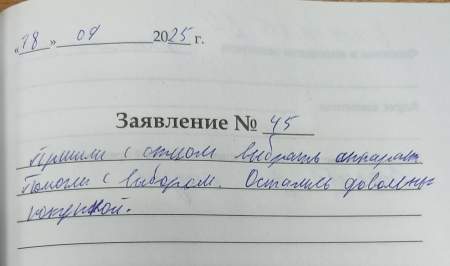 «18» 09 2025 г.
Заявление № 45
Пришли с отцом выбрать аппарат
Помогли с выбором. Остались довольны
покупкой.